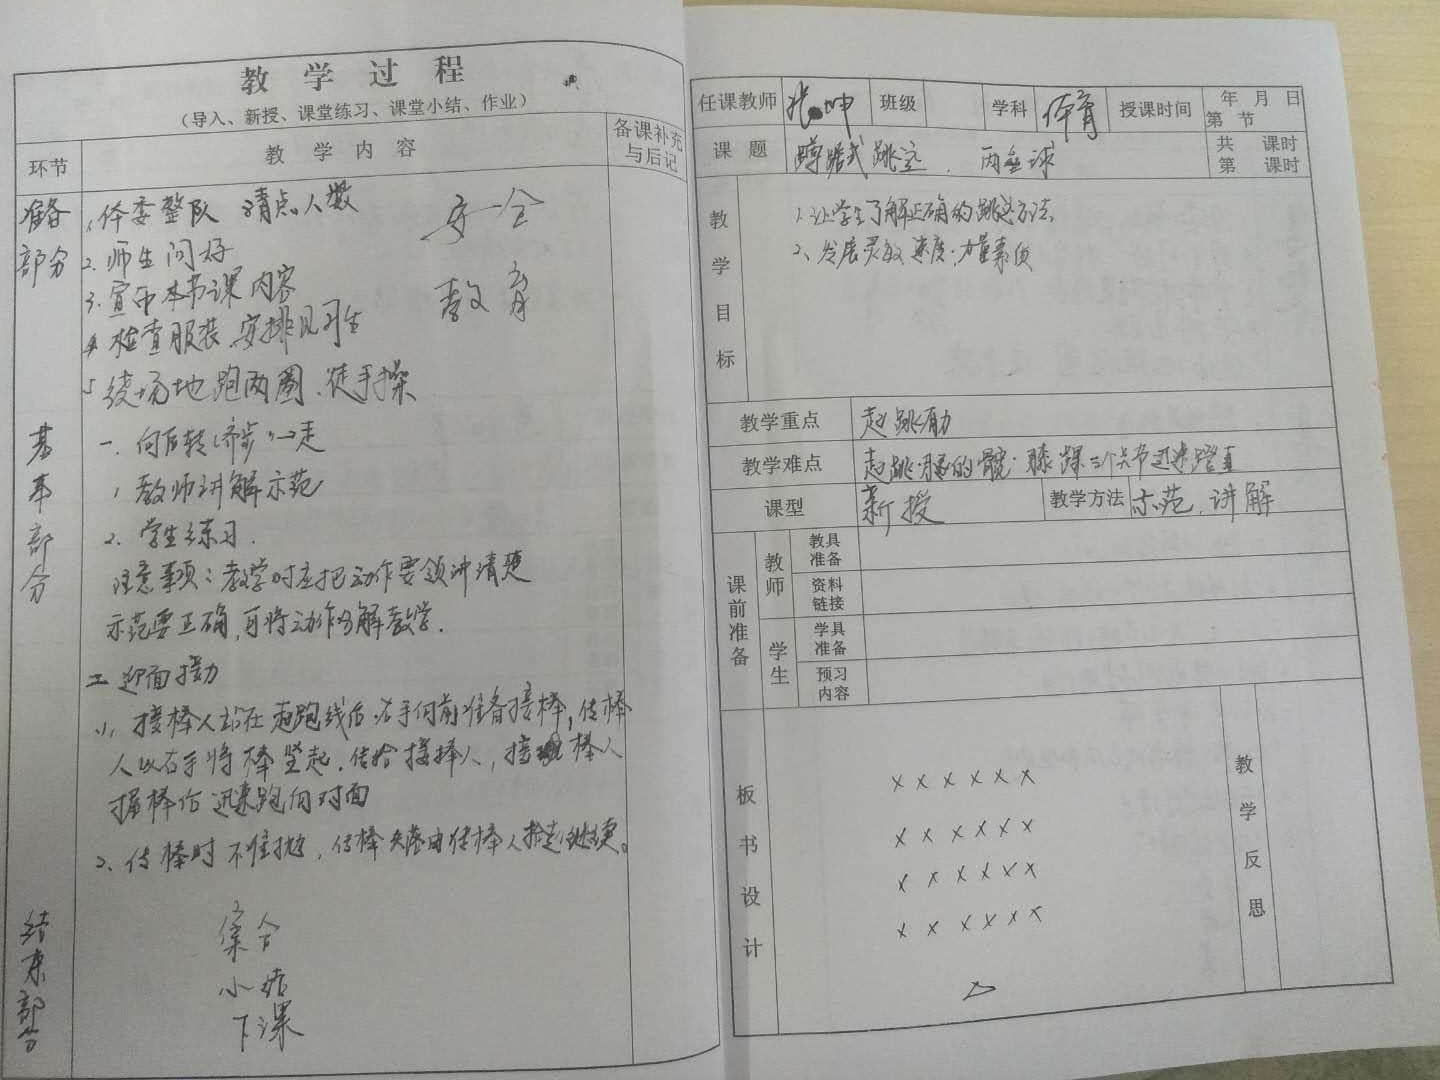 教 学 过 程
（导入、新授、课堂练习、课堂小结、作业）
环节
教 学 内 容
备课补充
与后记
准备
部分
1、体委整队 清点人数
2. 师生问好
3. 宣布本节课内容
4 检查服装、安排见习生
5 绕场地跑两圈、徒手操
安全
教育
基本部分
一、向后转（齐步）走
1、教师讲解示范
2、学生练习.
注意事项：教学时应把动作要领讲清楚
示范要正确,可将动作分解教学.
二 迎面接力
1、接棒人站在起跑线后,右手向前准备接棒,传棒
人以右手将棒竖起.传给接棒人,接棒人
握棒后迅速跑向对面
2、传棒时不准抛,传棒失落由传棒人拾起继续。
结束部分
集合
小结
下课
任课教师 张坤 班级 学科 体育 授课时间 年 月 日
第 节
课 题 蹲踞式跳远、 共 课时
第 课时
教学目标
1、让学生了解正确的跳远方法、
2、发展灵敏、速度、力量素质
教学重点 起跳有力
教学难点 起跳腿的髋、膝、踝三个关节迅速蹬直
课型 新授 教学方法 示范、讲解
课前准备
教师
教具
准备
资料
链接
学生
学具
准备
预习
内容
板书设计
× × × × × ×
× × × × × ×
× × × × × ×
× × × × × ×
教学反思